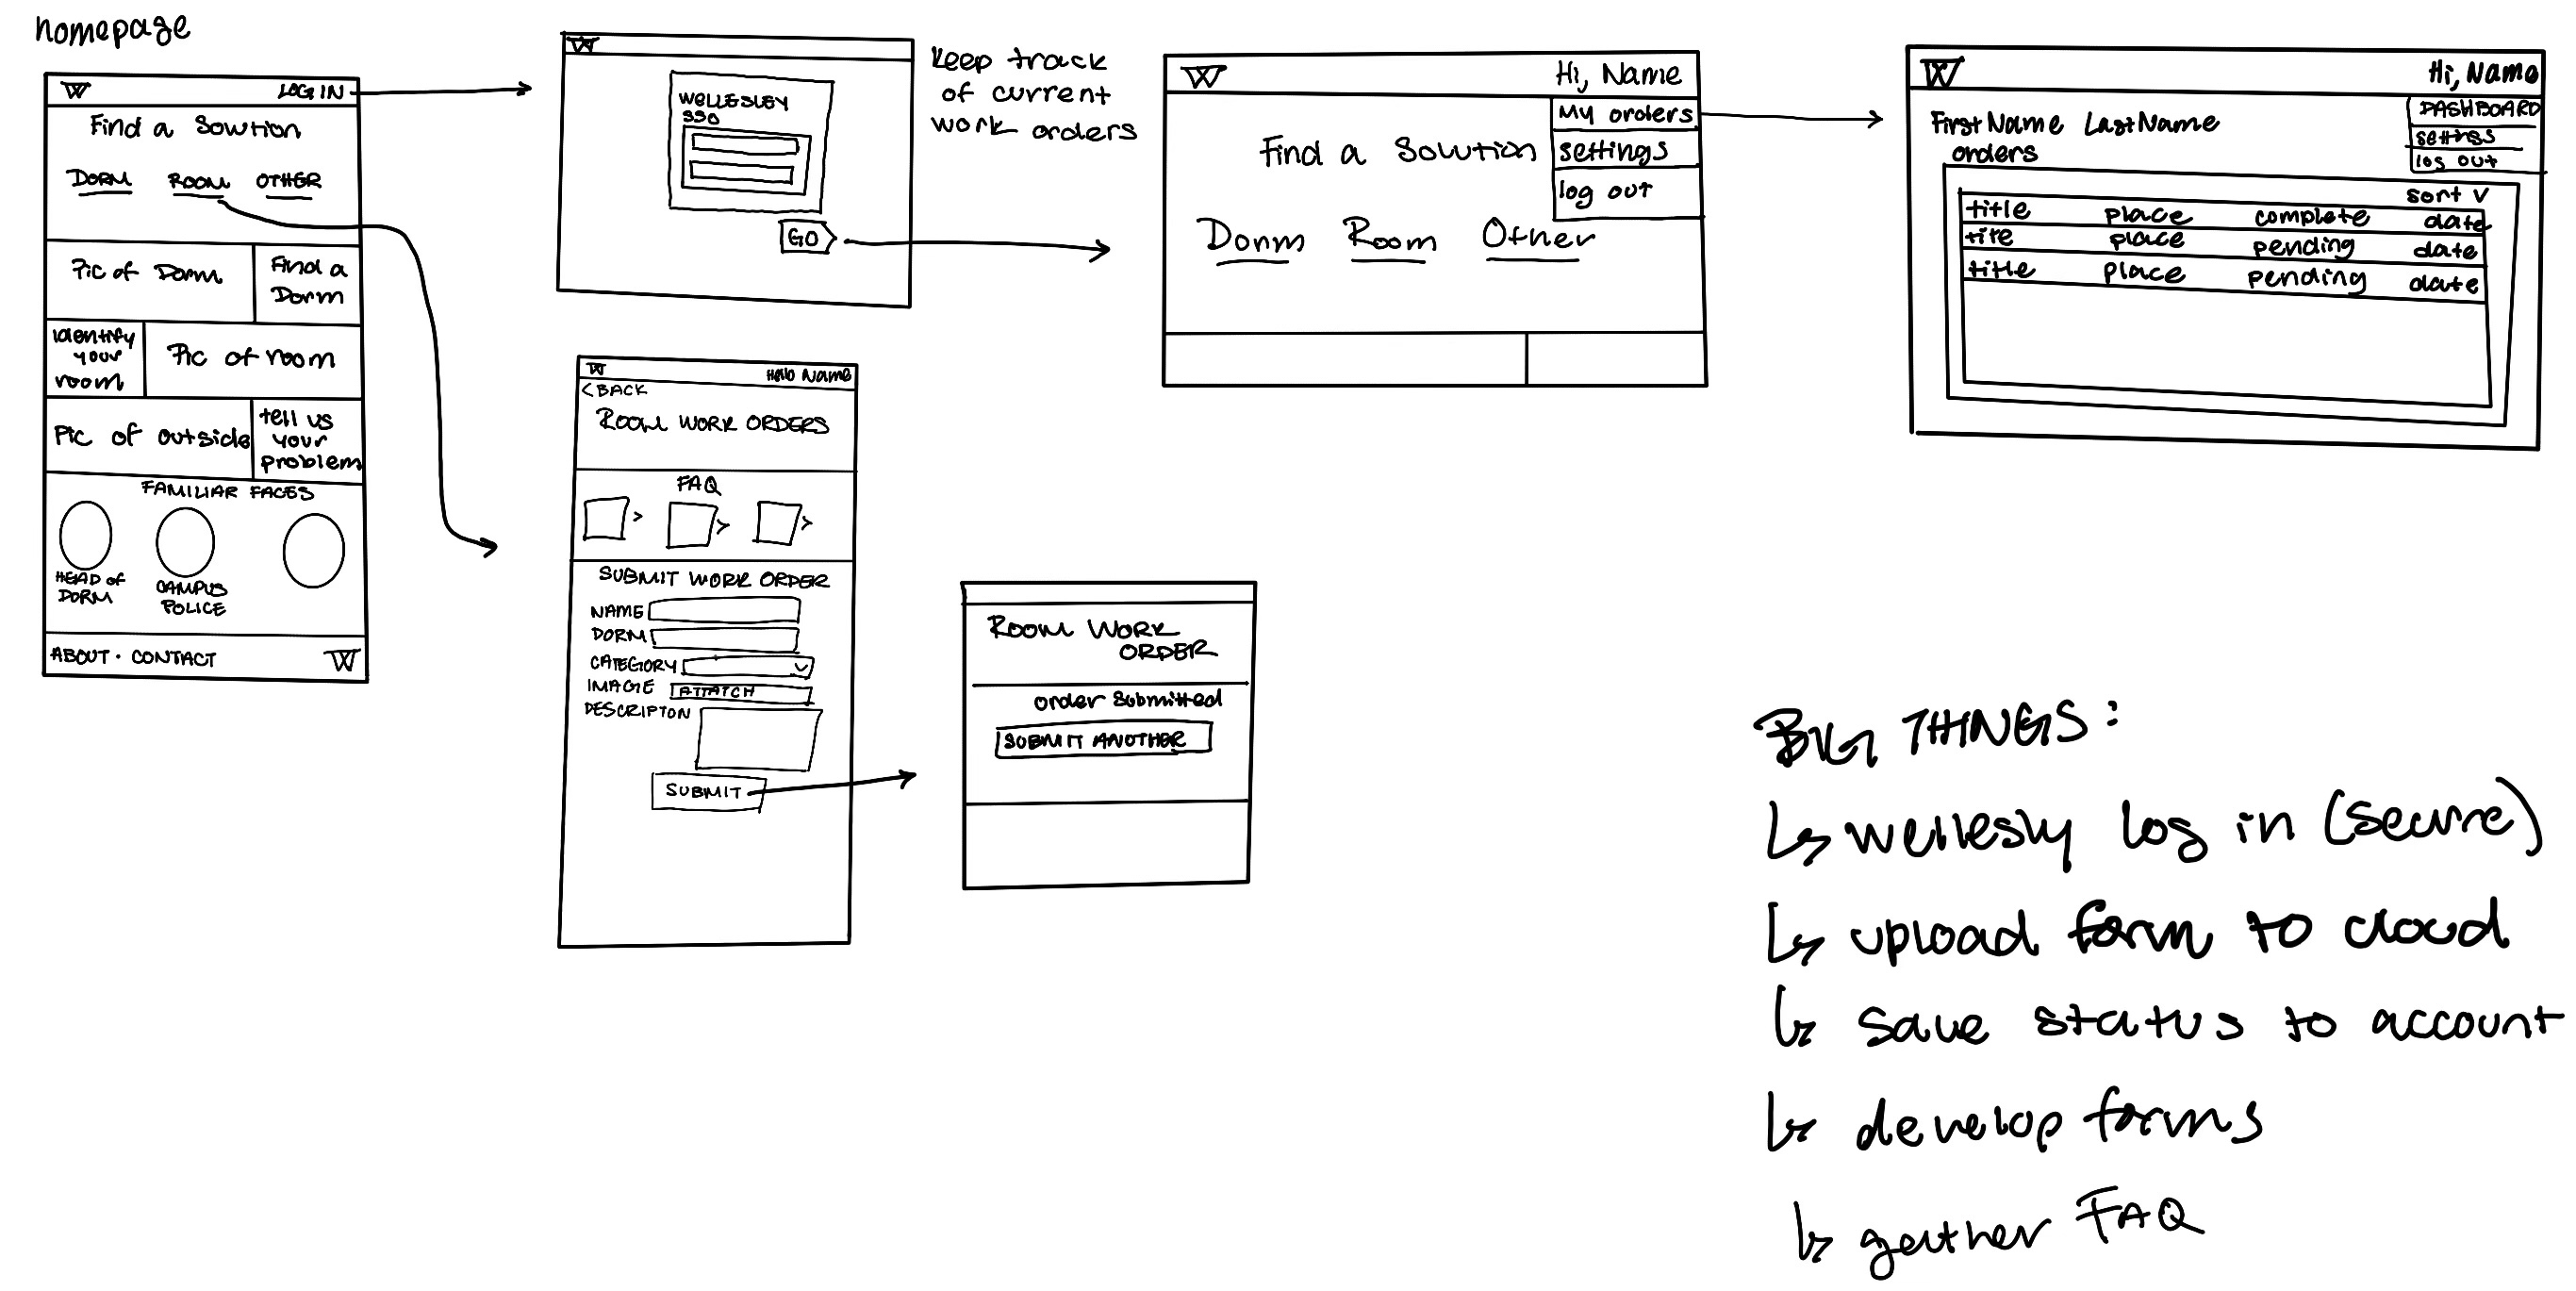 homepage
W
LOG IN
Find a Solution
DORM ROOM OTHER
Pic of Dorm
Find a
Dorm
identify
your
room
Pic of room
Pic of outside
tell us
your
problem
FAMILIAR FACES
HEAD of
DORM
CAMPUS
POLICE
ABOUT · CONTACT
W
W
WELLESLEY
SSO
GO
keep track
of current
work orders
W
Hi, Name
My orders
settings
log out
Find a Solution
Dorm Room Other
W
Hi, Name
DASHBOARD
settings
log out
First Name Last Name
orders
sort V
title place complete date
title place pending date
title place pending date
W
Hello Name
< BACK
ROOM WORK ORDERS
FAQ
> > >
SUBMIT WORK ORDER
NAME
DORM
CATEGORY
IMAGE ATTATCH
DESCRIPTON
SUBMIT
ROOM WORK
ORDER
order submitted
SUBMIT ANOTHER
BIG THINGS:
↳ wellesly log in (secure)
↳ upload form to cloud
↳ save status to account
↳ develop forms
↳ gather FAQ